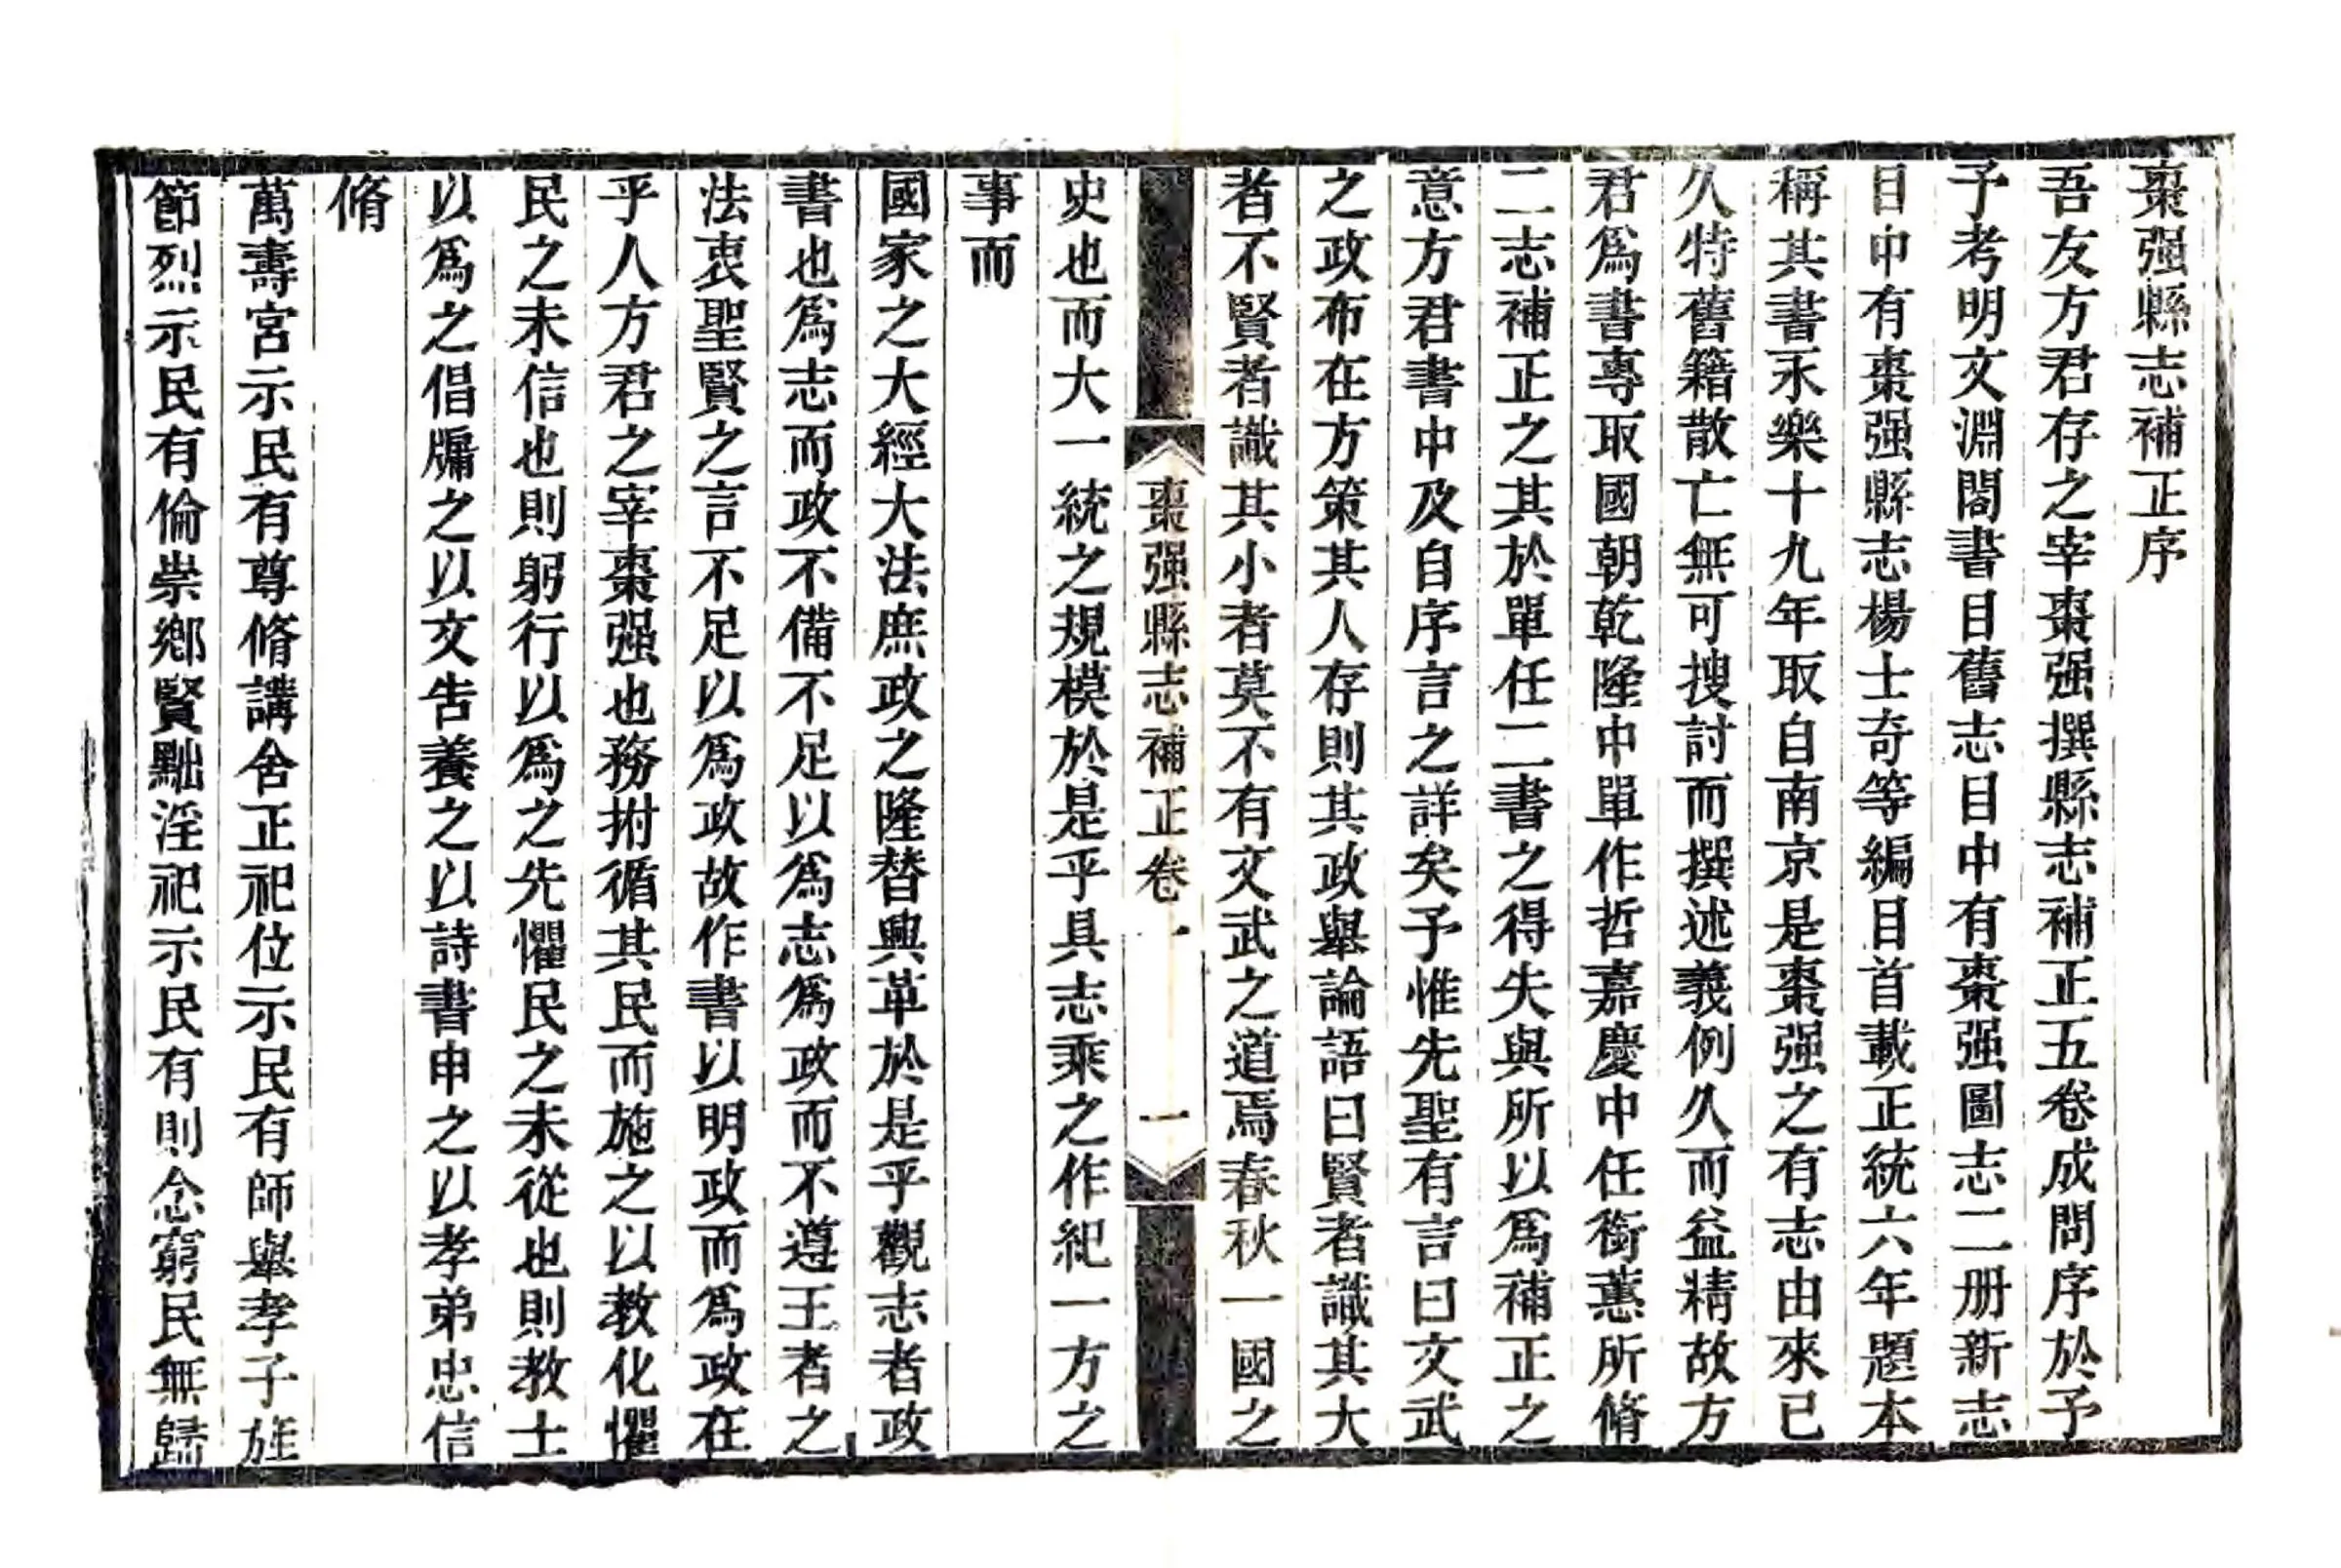 棗强縣志補正序
吾友方君存之宰棗强撰縣志補正五卷成問序於予
予考明文淵閣書目舊志目中有棗强圖志二册新志
目中有棗强縣志楊士奇等編目首載正統六年題本
稱其書永樂十九年取自南京是棗强之有志由來已
久特舊籍散亡無可搜討而撰述義例久而益精故方
君爲書專取國朝乾隆中單作哲嘉慶中任銜蕙所脩
二志補正之其於單任二書之得失與所以爲補正之
意方君書中及自序言之詳矣予惟先聖有言曰文武
之政布在方策其人存則其政舉論語曰賢者識其大
者不賢者識其小者莫不有文武之道焉春秋一國之
棗强縣志補正卷一
一
史也而大一統之規模於是乎具志乘之作紀一方之
事而
國家之大經大法庶政之隆替興革於是乎觀志者政
書也爲志而政不備不足以爲志爲政而不遵王者之
法衷聖賢之言不足以爲政故作書以明政而爲政在
乎人方君之宰棗强也務拊循其民而施之以教化懼
民之未信也則躬行以爲之先懼民之未從也則教士
以爲之倡牖之以文告養之以詩書申之以孝弟忠信
脩
萬壽宮示民有尊脩講舍正祀位示民有師舉孝子旌
節烈示民有倫崇鄉賢黜淫祀示民有則念窮民無歸